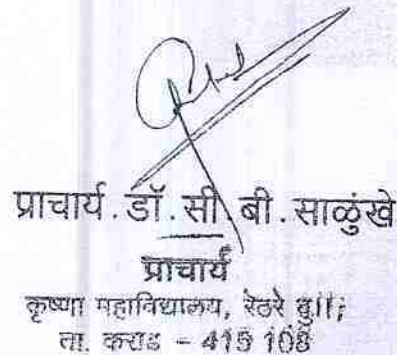 प्राचार्य.डॉ.सी.बी.साळुंखे
प्राचार्य
कृष्णा महाविद्यालय, रेठरे बु॥;
ता. कराड - 415 108